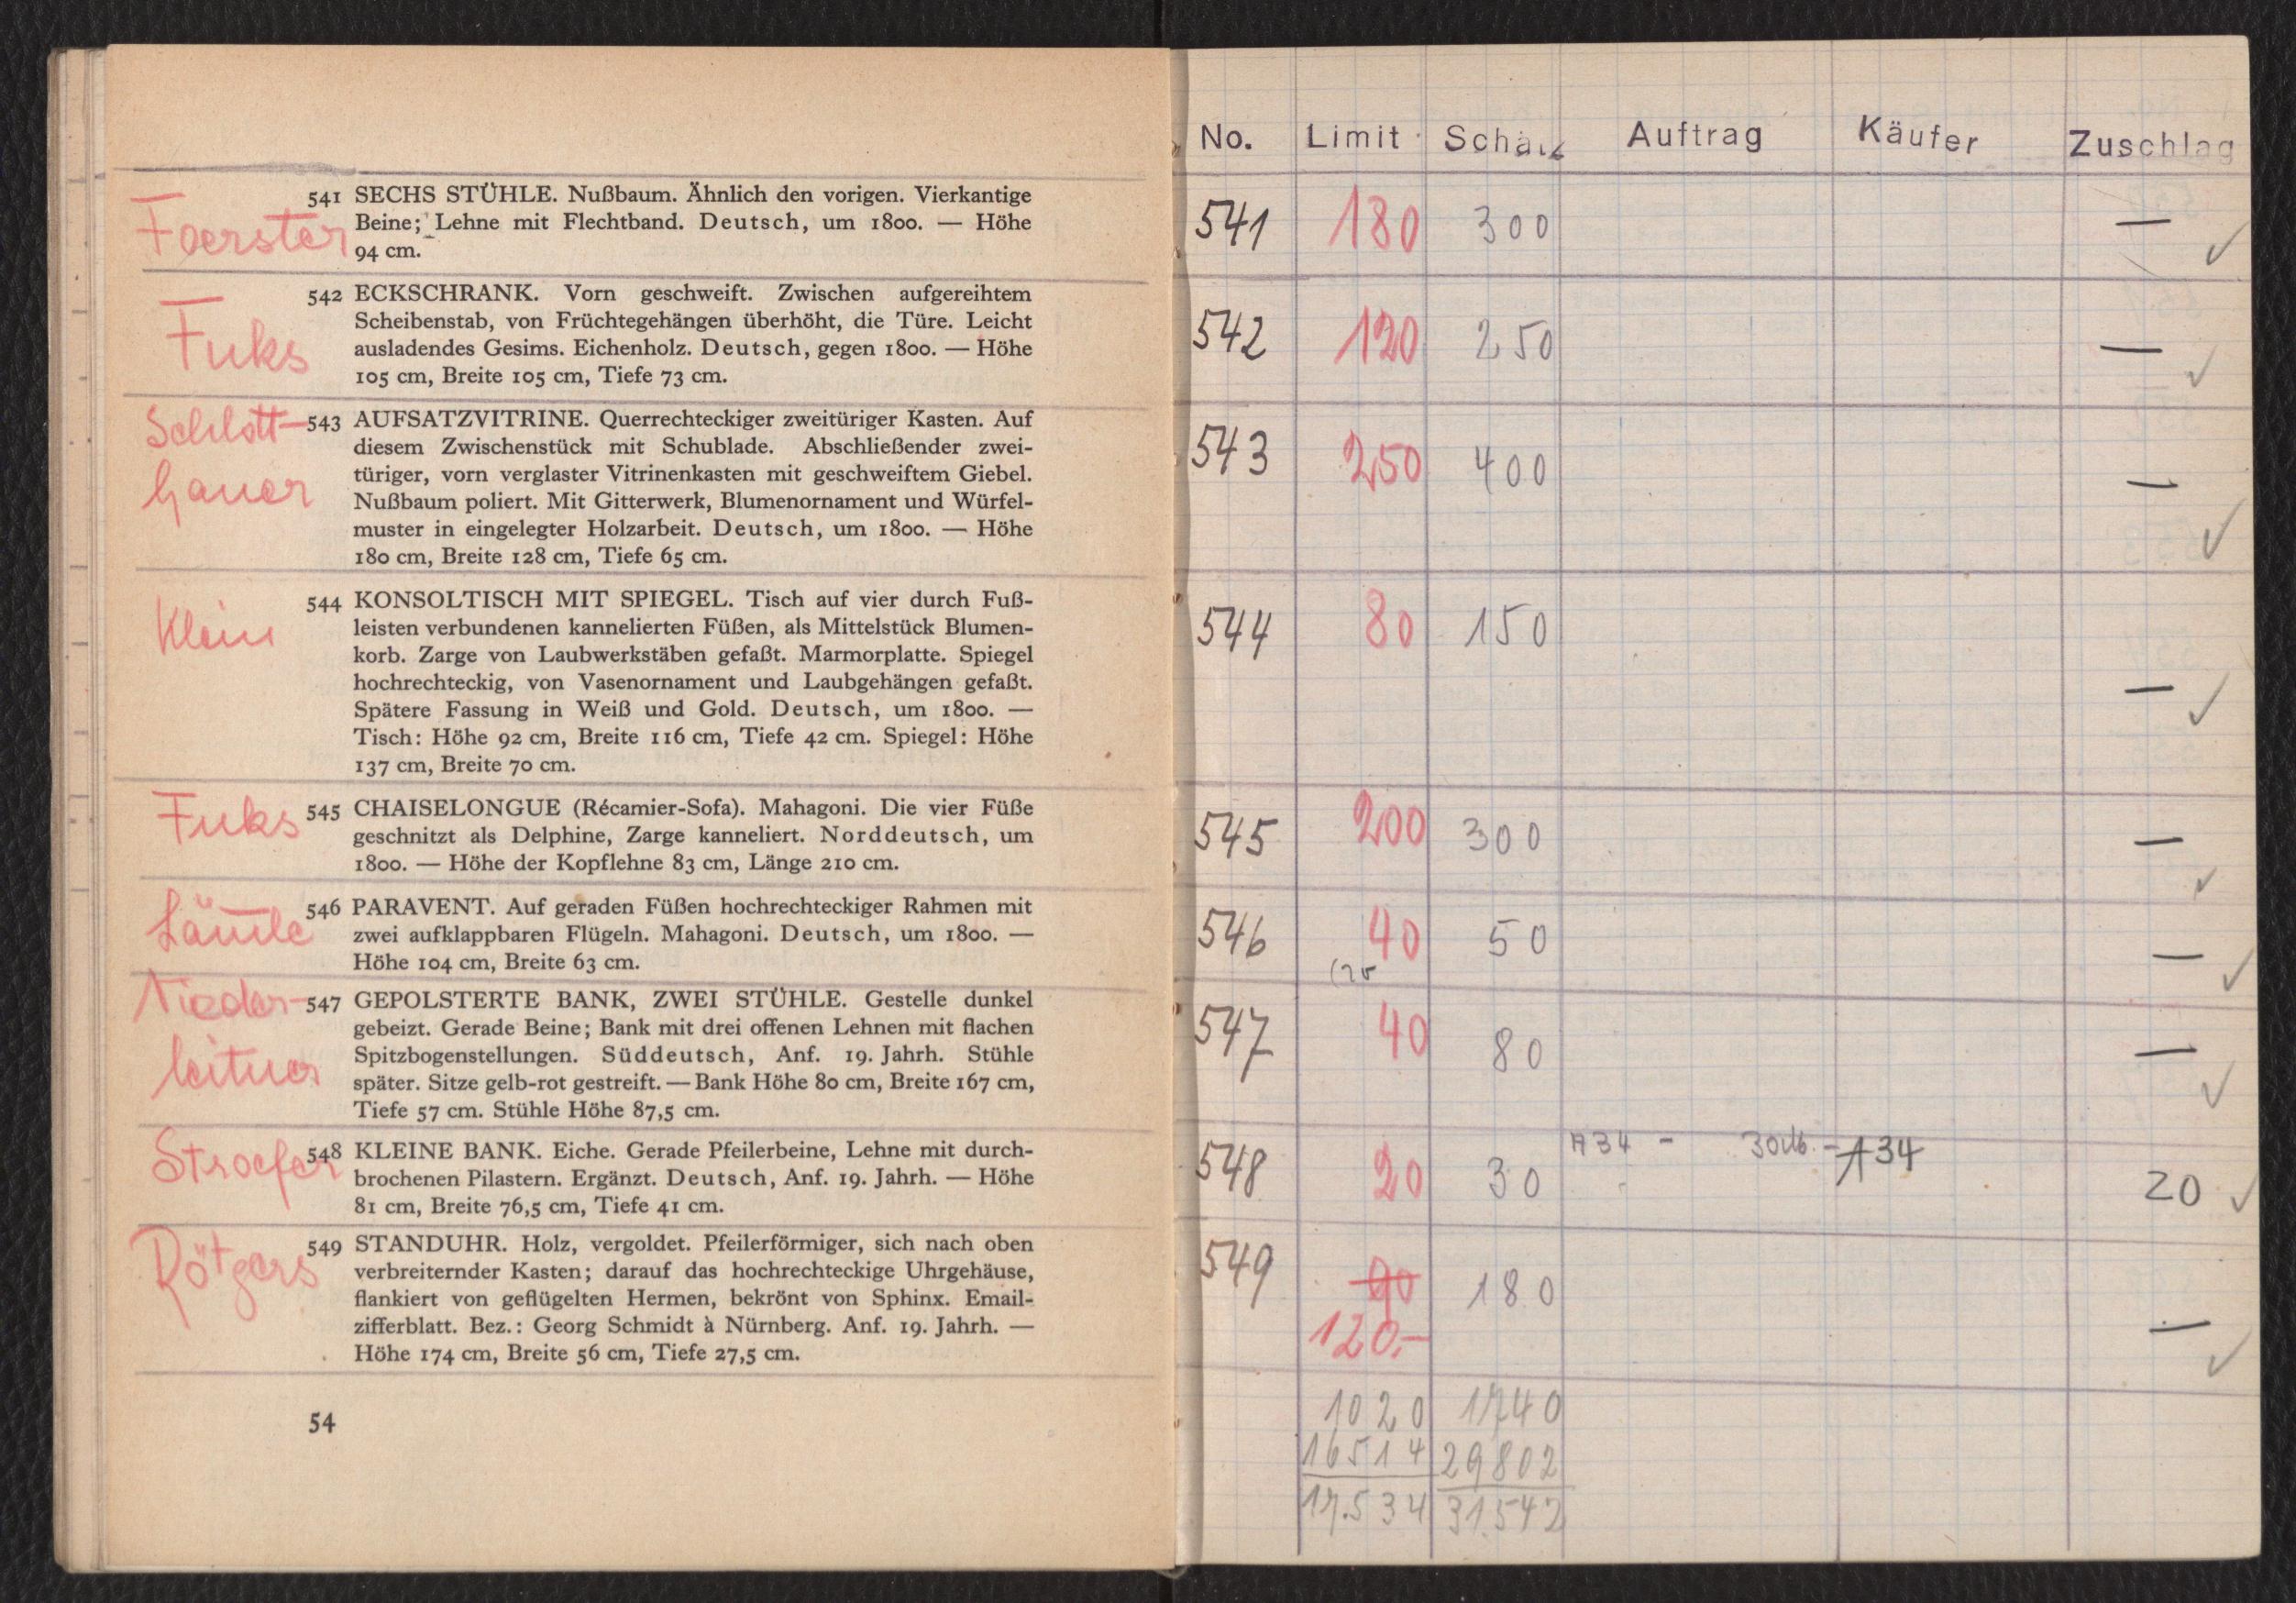 Foerster
541 SECHS STÜHLE. Nußbaum. Ähnlich den vorigen. Vierkantige
Beine; Lehne mit Flechtband. Deutsch, um 1800. — Höhe
94 cm.
Fuks
542 ECKSCHRANK. Vorn geschweift. Zwischen aufgereihtem
Scheibenstab, von Früchtegehängen überhöht, die Türe. Leicht
ausladendes Gesims. Eichenholz. Deutsch, gegen 1800. — Höhe
105 cm, Breite 105 cm, Tiefe 73 cm.
Schlott-
hauer
543 AUFSATZVITRINE. Querrechteckiger zweitüriger Kasten. Auf
diesem Zwischenstück mit Schublade. Abschließender zwei-
türiger, vorn verglaster Vitrinenkasten mit geschweiftem Giebel.
Nußbaum poliert. Mit Gitterwerk, Blumenornament und Würfel-
muster in eingelegter Holzarbeit. Deutsch, um 1800. — Höhe
180 cm, Breite 128 cm, Tiefe 65 cm.
Klein
544 KONSOLTISCH MIT SPIEGEL. Tisch auf vier durch Fuß-
leisten verbundenen kannelierten Füßen, als Mittelstück Blumen-
korb. Zarge von Laubwerkstäben gefaßt. Marmorplatte. Spiegel
hochrechteckig, von Vasenornament und Laubgehängen gefaßt.
Spätere Fassung in Weiß und Gold. Deutsch, um 1800. —
Tisch: Höhe 92 cm, Breite 116 cm, Tiefe 42 cm. Spiegel: Höhe
137 cm, Breite 70 cm.
Fuks
545 CHAISELONGUE (Récamier-Sofa). Mahagoni. Die vier Füße
geschnitzt als Delphine, Zarge kanneliert. Norddeutsch, um
1800. — Höhe der Kopflehne 83 cm, Länge 210 cm.
546 PARAVENT. Auf geraden Füßen hochrechteckiger Rahmen mit
zwei aufklappbaren Flügeln. Mahagoni. Deutsch, um 1800. —
Höhe 104 cm, Breite 63 cm.
Nieder-
leitner
547 GEPOLSTERTE BANK, ZWEI STÜHLE. Gestelle dunkel
gebeizt. Gerade Beine; Bank mit drei offenen Lehnen mit flachen
Spitzbogenstellungen. Süddeutsch, Anf. 19. Jahrh. Stühle
später. Sitze gelb-rot gestreift. — Bank Höhe 80 cm, Breite 167 cm,
Tiefe 57 cm. Stühle Höhe 87,5 cm.
Stroefer
548 KLEINE BANK. Eiche. Gerade Pfeilerbeine, Lehne mit durch-
brochenen Pilastern. Ergänzt. Deutsch, Anf. 19. Jahrh. — Höhe
81 cm, Breite 76,5 cm, Tiefe 41 cm.
Rötgers
549 STANDUHR. Holz, vergoldet. Pfeilerförmiger, sich nach oben
verbreiternder Kasten; darauf das hochrechteckige Uhrgehäuse,
flankiert von geflügelten Hermen, bekrönt von Sphinx. Email-
zifferblatt. Bez.: Georg Schmidt à Nürnberg. Anf. 19. Jahrh. —
Höhe 174 cm, Breite 56 cm, Tiefe 27,5 cm.
54
No. Limit Schätz Auftrag Käufer Zuschlag
541 180 300 — ✓
542 120 250 — ✓
543 250 400 — ✓
544 80 150 — ✓
545 200 300 — ✓
546 40 50 — ✓
547 40 80 — ✓
548 20 30 A 34 – 30 – A 34 20 ✓
549 90 180
120.– — ✓
1020 1740
16514 29802
17.534 31.542